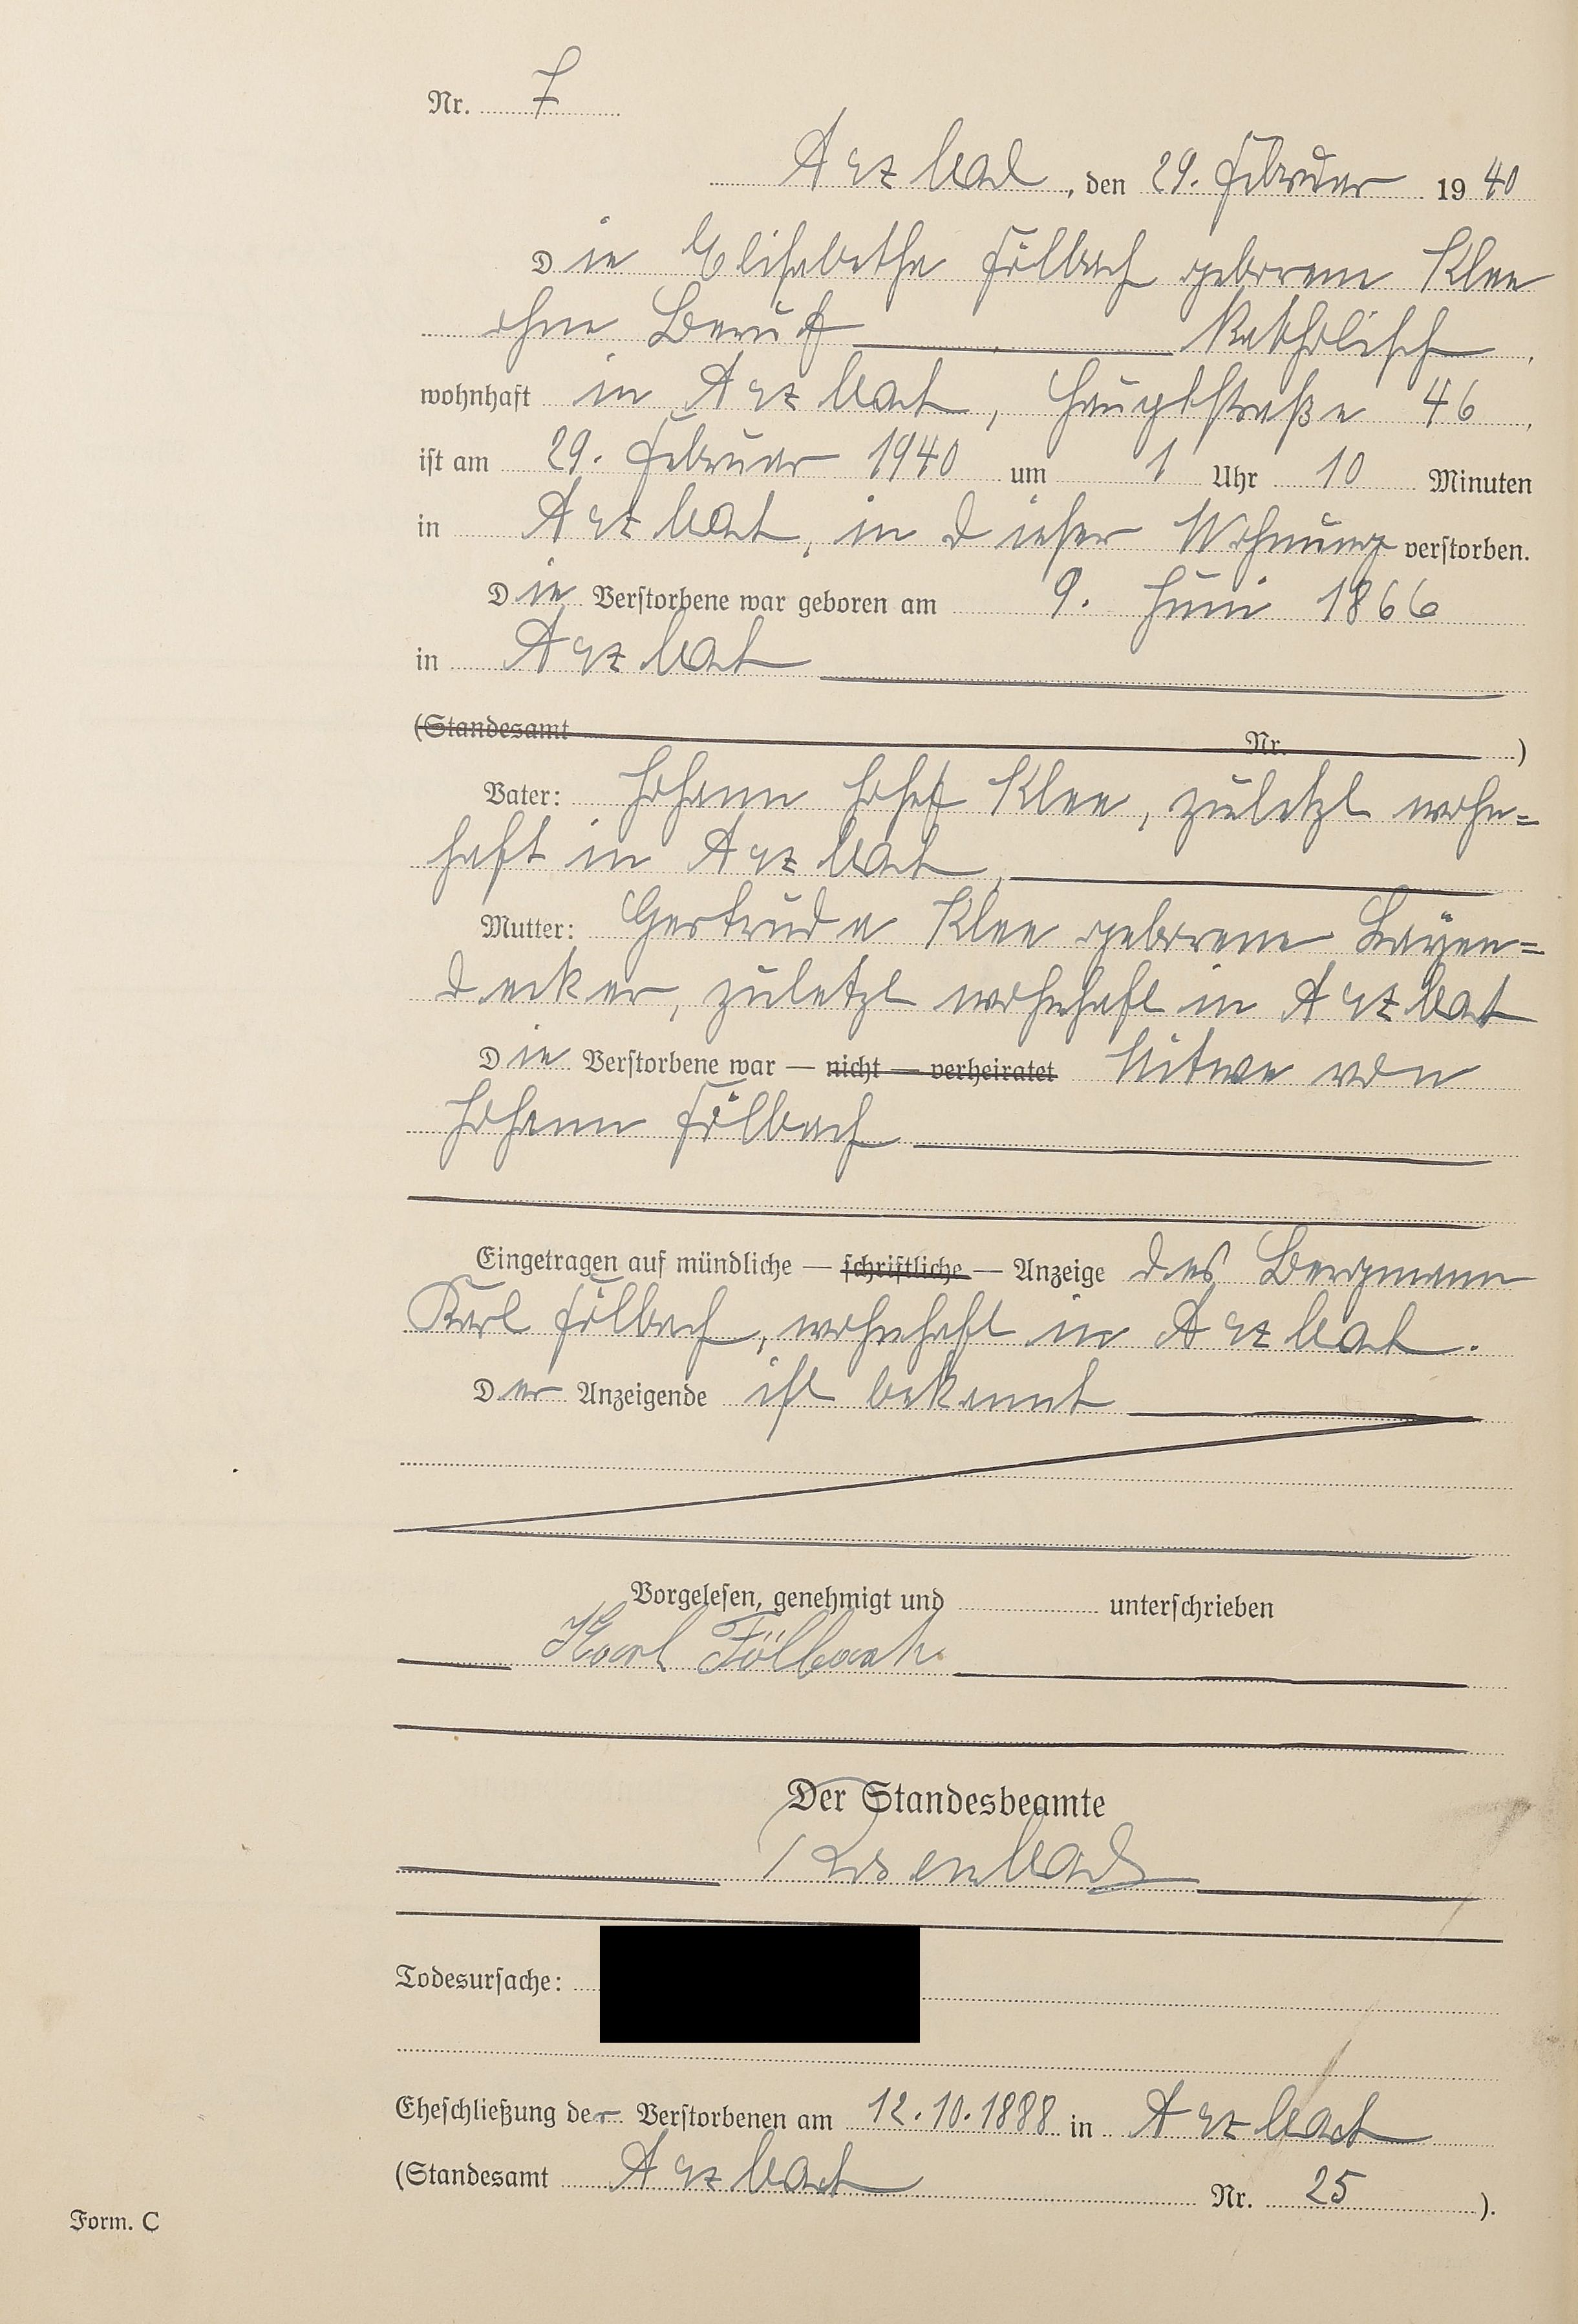 Nr. 7
Arzbach, den 29. Februar 1940
Die Elisabetha Fölbach geborene Klee
ohne Beruf katholisch,
wohnhaft in Arzbach, Hauptstraße 46,
ist am 29. Februar 1940 um 1 Uhr 10 Minuten
in Arzbach, in dieser Wohnung verstorben.
Die Verstorbene war geboren am 9. Juni 1866
in Arzbach
(Standesamt Nr. )
Vater: Johann Josef Klee, zuletzt wohn=
haft in Arzbach,
Mutter: Gertrude Klee geborene Layen=
decker, zuletzt wohnhaft in Arzbach
Die Verstorbene war — nicht — verheiratet Witwe von
Johann Fölbach
Eingetragen auf mündliche — schriftliche — Anzeige des Bergmann
Karl Fölbach, wohnhaft in Arzbach.
Der Anzeigende ist bekannt
Vorgelesen, genehmigt und unterschrieben
Karl Fölbach
Der Standesbeamte
Todesursache:
Eheschließung der Verstorbenen am 12.10.1888 in Arzbach
(Standesamt Arzbach Nr. 25 ).
Form. C